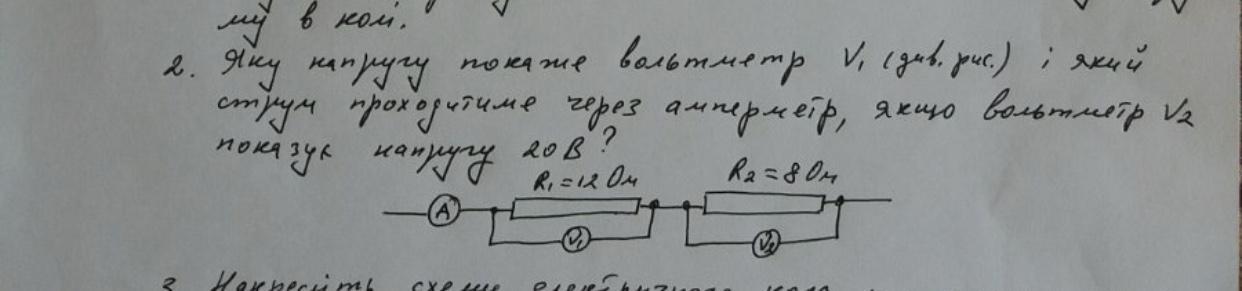 му в колі.
2. Яку напругу покаже вольтметр V₁ (див. рис.) і який
струм проходитиме через амперметр, якщо вольтметр V₂
показує напругу 20 В?
R₁=12 Ом R₂=8 Ом
A
V₁ V₂
3. Накресліть схему електричного кола